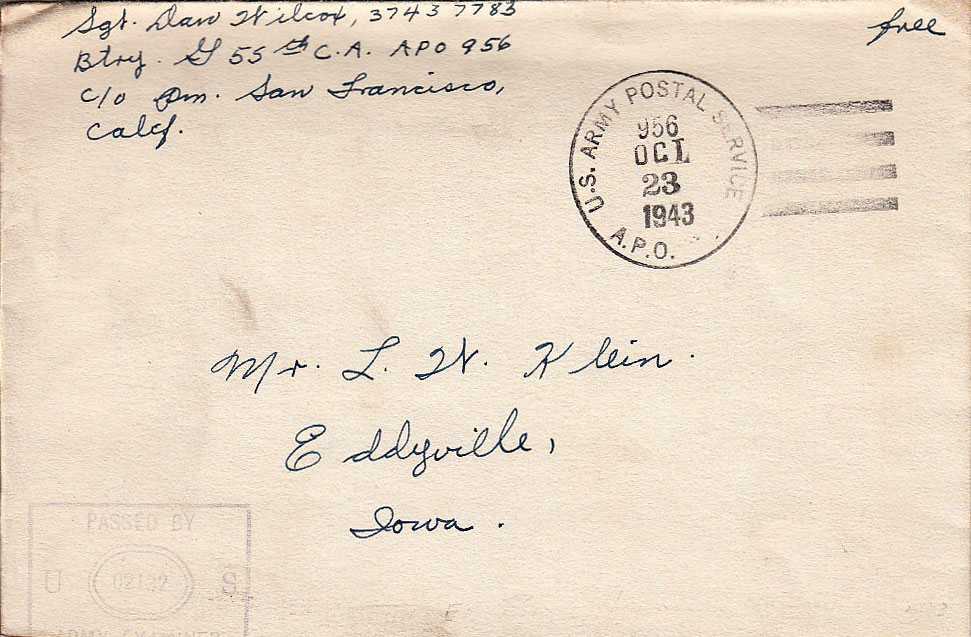 Sgt. Dan Wilcox, 37437783
free
Btry. G 55th C.A. APO 956
c/o Pm. San Francisco,
Calif.
U.S. ARMY POSTAL SERVICE
956
OCT
23
1943
A.P.O.
Mr. L. W. Klein.
Eddyville,
Iowa.
PASSED BY
U 02132 S
ARMY EXAMINER